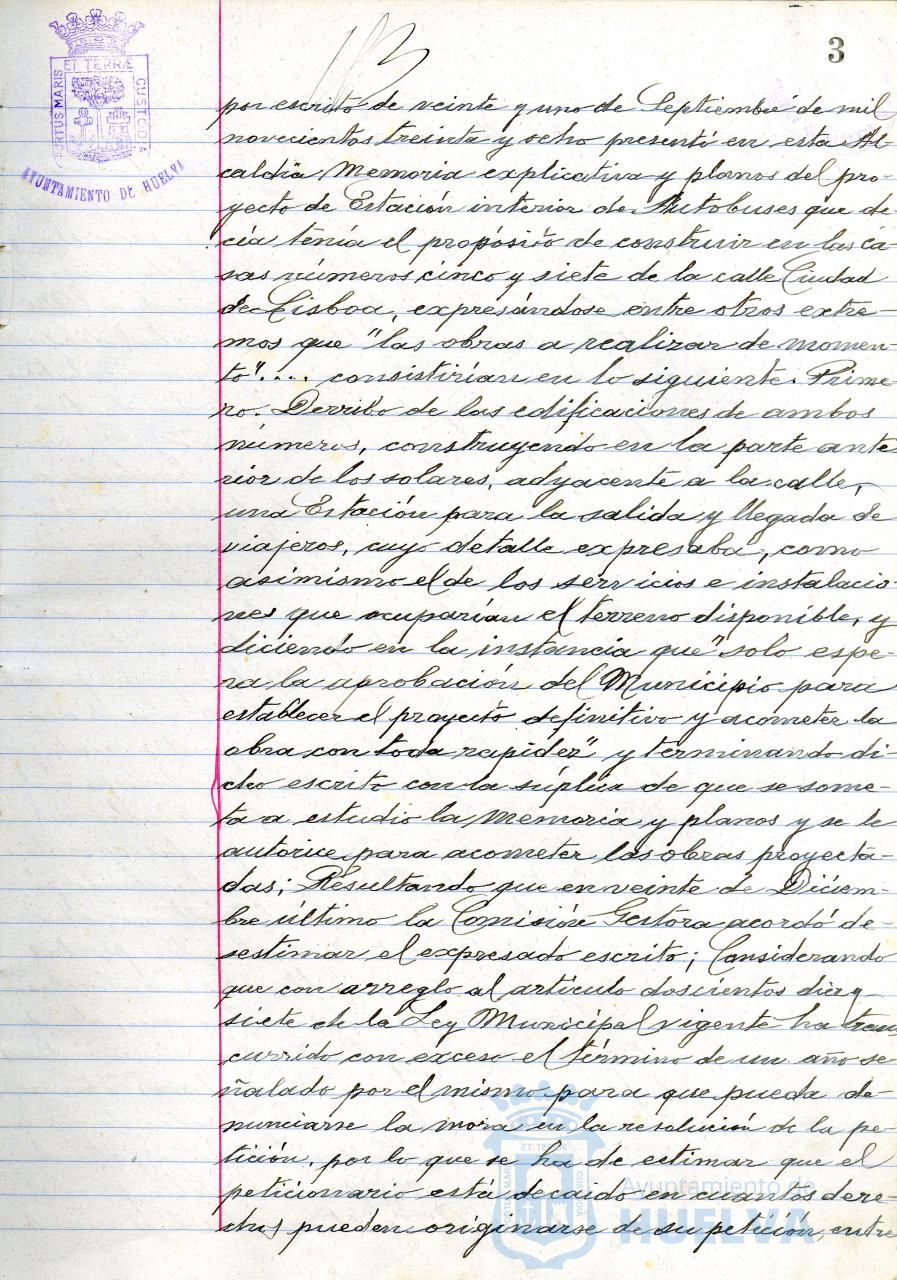 3
PORTUS MARIS ET TERRÆ CUSTODIA
AYUNTAMIENTO DE HUELVA
por escrito de veinte y uno de Septiembre de mil
novecientos treinta y ocho presentó en esta Al-
caldía, Memoria explicativa y planos del pro-
yecto de Estación interior de Autobuses que de-
cía tenía el propósito de construir en las ca-
sas números cinco y siete de la calle Ciudad
de Lisboa, expresándose entre otros extre-
mos que "las obras a realizar de momen-
to".... consistirían en lo siguiente. Prime-
ro. Derribo de las edificaciones de ambos
números, construyendo en la parte ante
rior de los solares, adyacente a la calle,
una Estación para la salida y llegada de
viajeros, cuyo detalle expresaba, como
asimismo el de los servicios e instalacio-
nes que ocuparían el terreno disponible, y
diciendo en la instancia que "solo espe-
ra la aprobación del Municipio para
establecer el proyecto definitivo y acometer la
obra con toda rapidez" y terminando di-
cho escrito con la súplica de que se some-
ta a estudio la Memoria y planos y se le
autorice para acometer las obras proyecta-
das; Resultando que en veinte de Diciem-
bre último la Comisión Gestora acordó de-
sestimar el expresado escrito; Considerando
que con arreglo al artículo doscientos diez y
siete de la Ley Municipal vigente ha trans
currido con exceso el término de un año se-
ñalado por el mismo para que pueda de-
nunciarse la mora en la resolución de la pe-
tición, por lo que se ha de estimar que el
peticionario está decaido en cuantos dere-
chos pueden originarse de su petición, entre
Ayuntamiento de
HUELVA